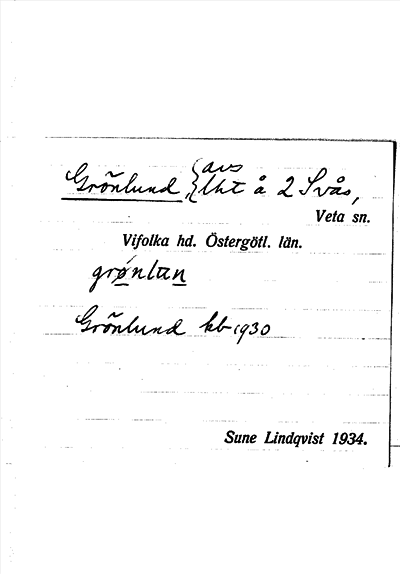 Grönlund, {avs lht å 2 Svås,
Veta sn.
Vifolka hd. Östergötl. län.
grǿnlun
Grönlund kb 1930
Sune Lindqvist 1934.